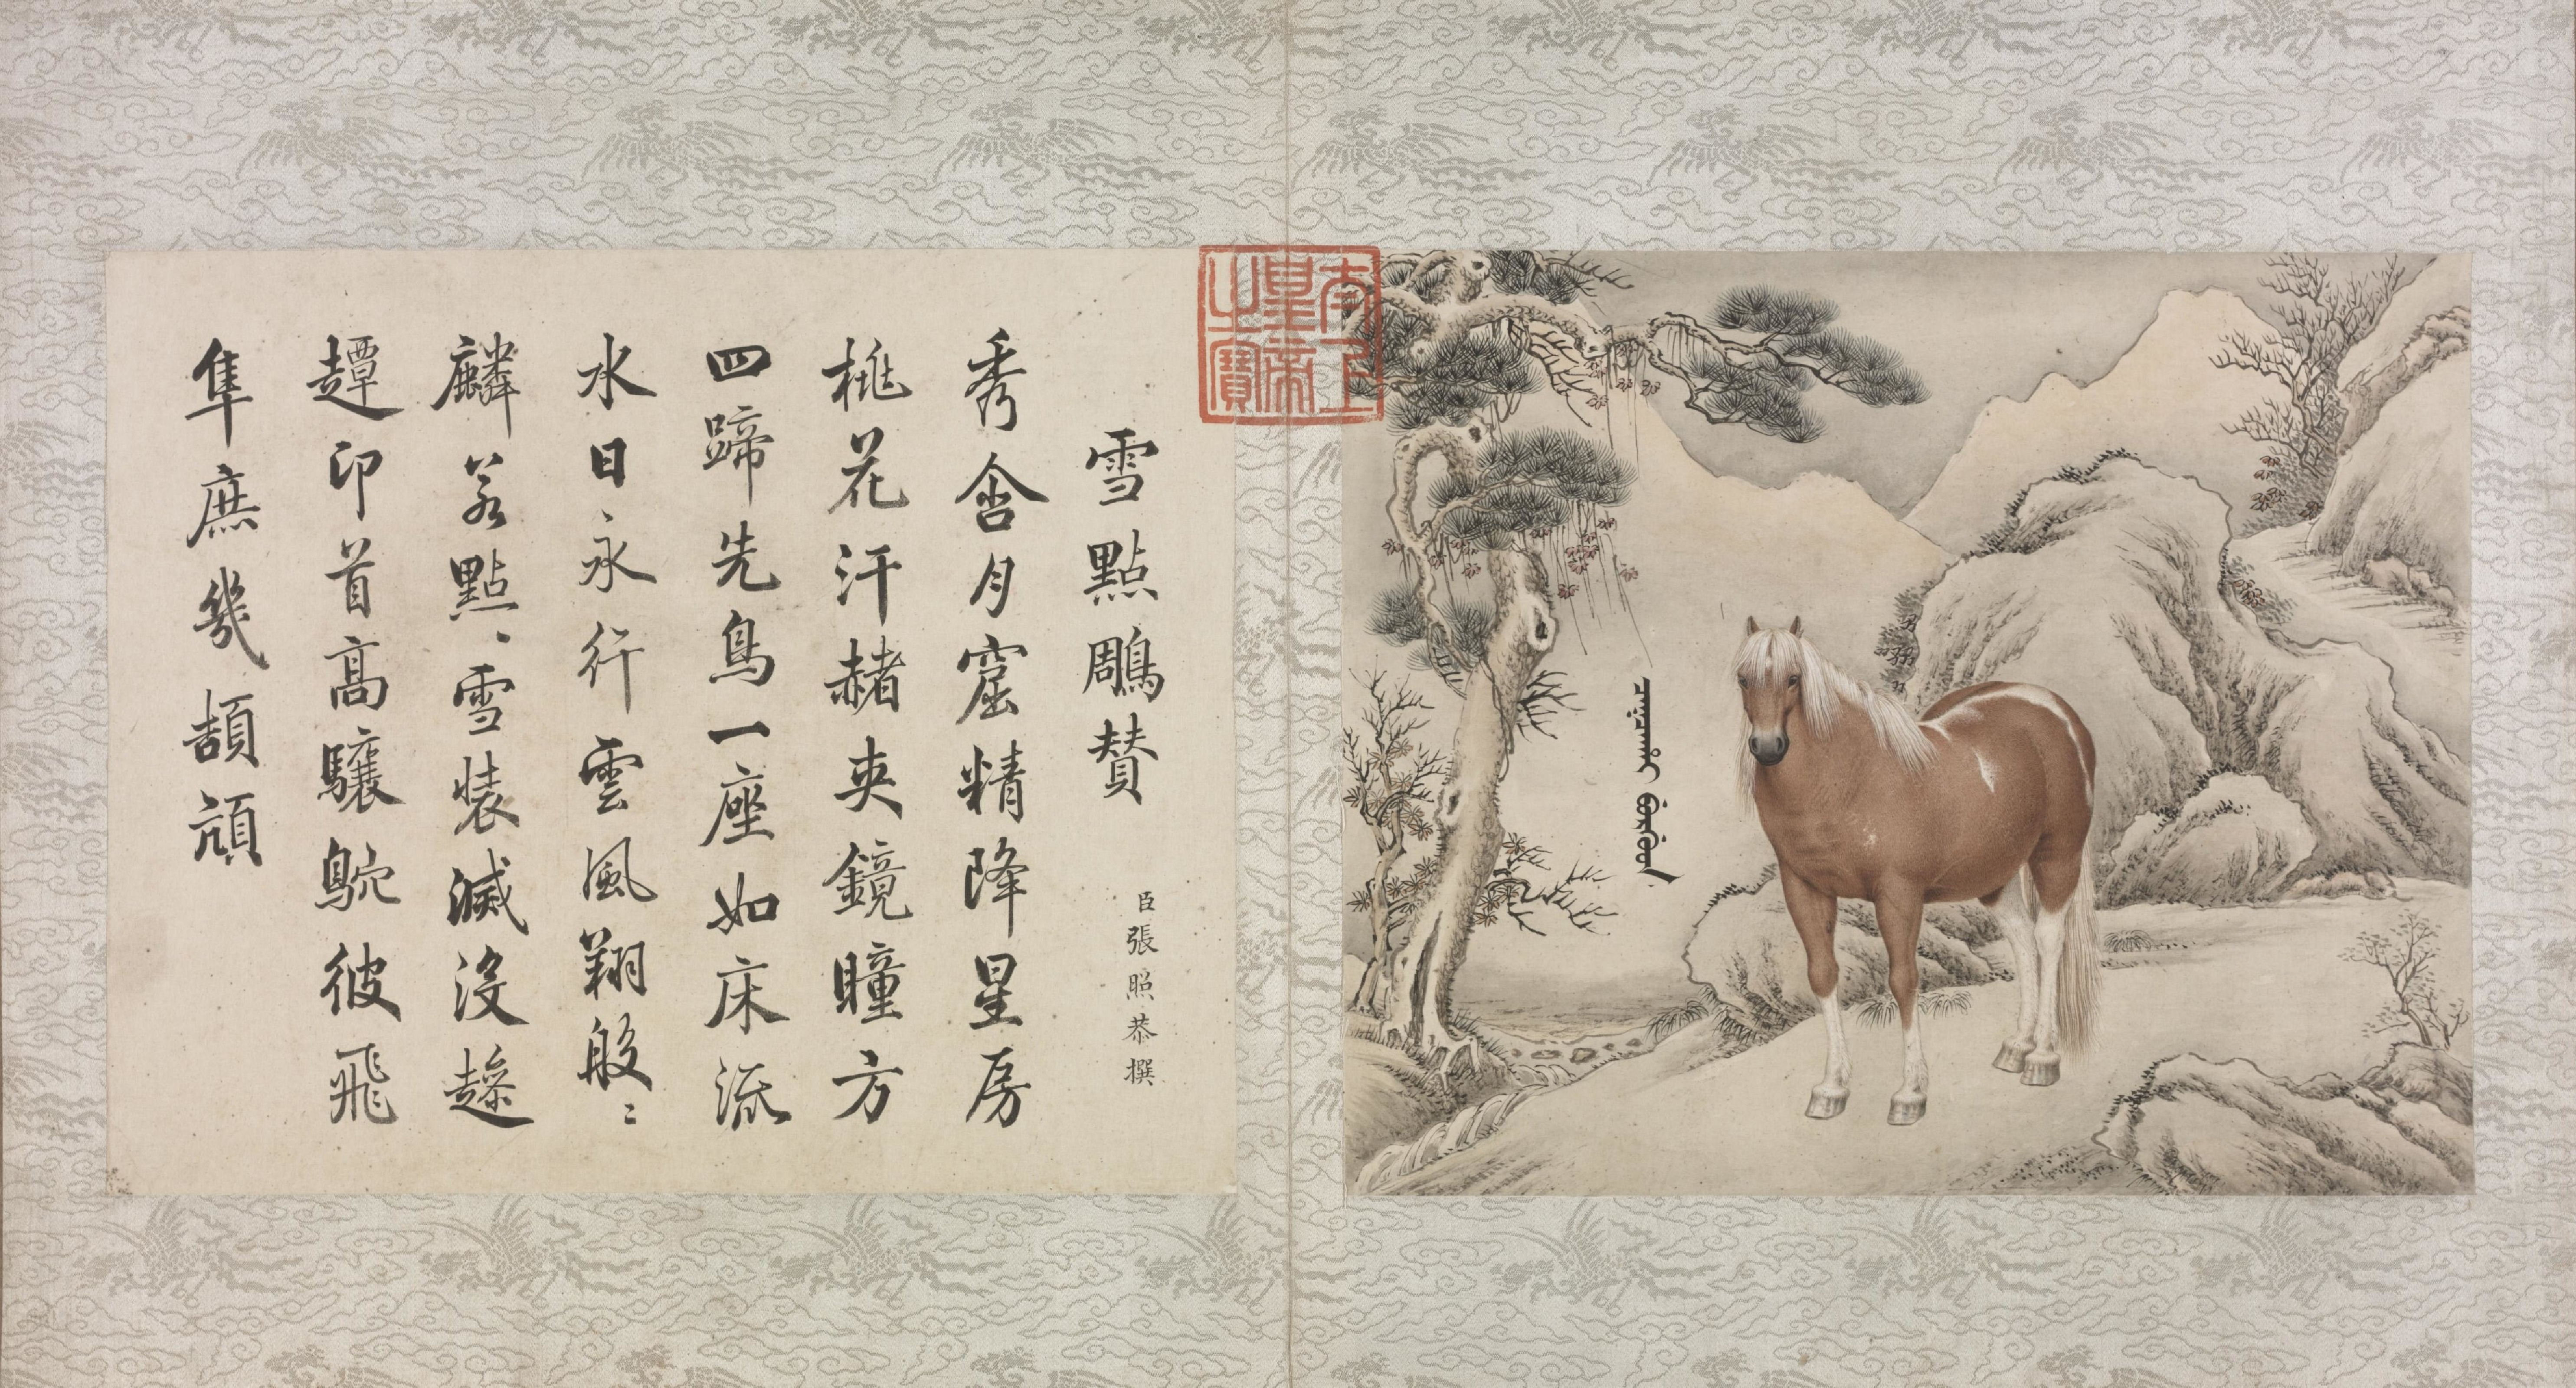 太上皇帝之寶
雪點鵰賛
臣張照恭撰
秀含月窟精降星房
桃花汗赭夾鏡瞳方
四蹄先鳥一座如床流
水日永行雲風翔般〻
麟若點〻雪裝滅沒
卬首高驤鴥彼飛
隼庶幾頡頏